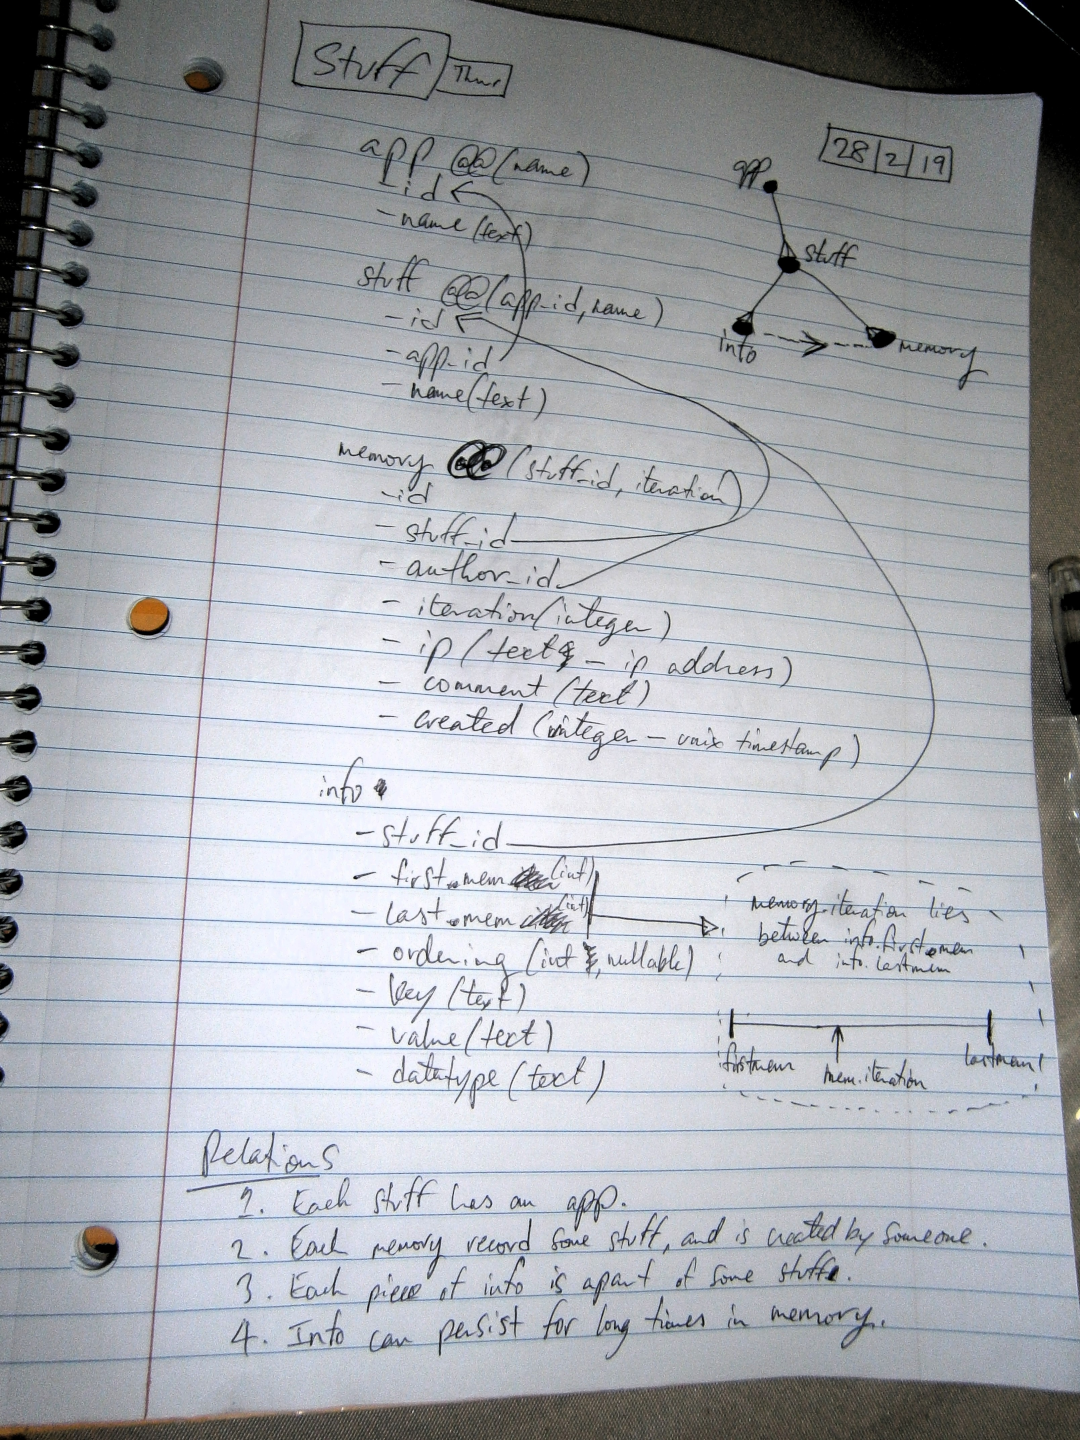 Stuff Thur
28 2 19
app @@ (name)
- id
- name (text)
stuff @@ (app_id, name)
- id
- app_id
- name (text)
app
stuff
info
memory
memory @@ (stuff_id, iteration)
- id
- stuff_id
- author_id
- iteration (integer)
- ip (text - ip address)
- comment (text)
- created (integer - unix timestamp)
info
- stuff_id
- first_mem (int)
- last_mem (int)
- ordering (int, nullable)
- key (text)
- value (text)
- datatype (text)
memory.iteration lies
between info.first_mem
and info.lastmem
firstmem
mem.iteration
lastmem
Relations
1. Each stuff has an app.
2. Each memory record some stuff, and is created by someone.
3. Each piece of info is apart of some stuff.
4. Info can persist for long times in memory.